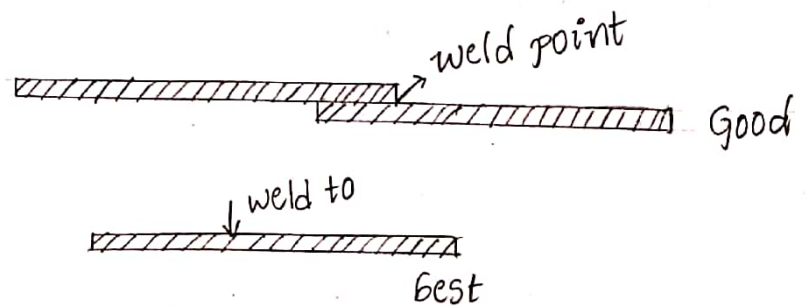 weld point
Good
weld to
best